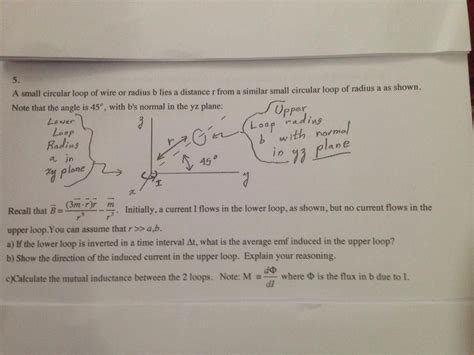 5.
A small circular loop of wire or radius b lies a distance r from a similar small circular loop of radius a as shown.
Note that the angle is 45°, with b's normal in the yz plane:
Lower
Loop
Radius
a in
xy plane
z
r
45°
y
x
I
Upper
Loop radius
b with normal
in yz plane
Recall that B = (3m·r)r/r⁵ - m/r³. Initially, a current I flows in the lower loop, as shown, but no current flows in the
upper loop. You can assume that r >> a,b.
a) If the lower loop is inverted in a time interval Δt, what is the average emf induced in the upper loop?
b) Show the direction of the induced current in the upper loop. Explain your reasoning.
c)Calculate the mutual inductance between the 2 loops. Note: M ≡ dΦ/dI where Φ is the flux in b due to I.